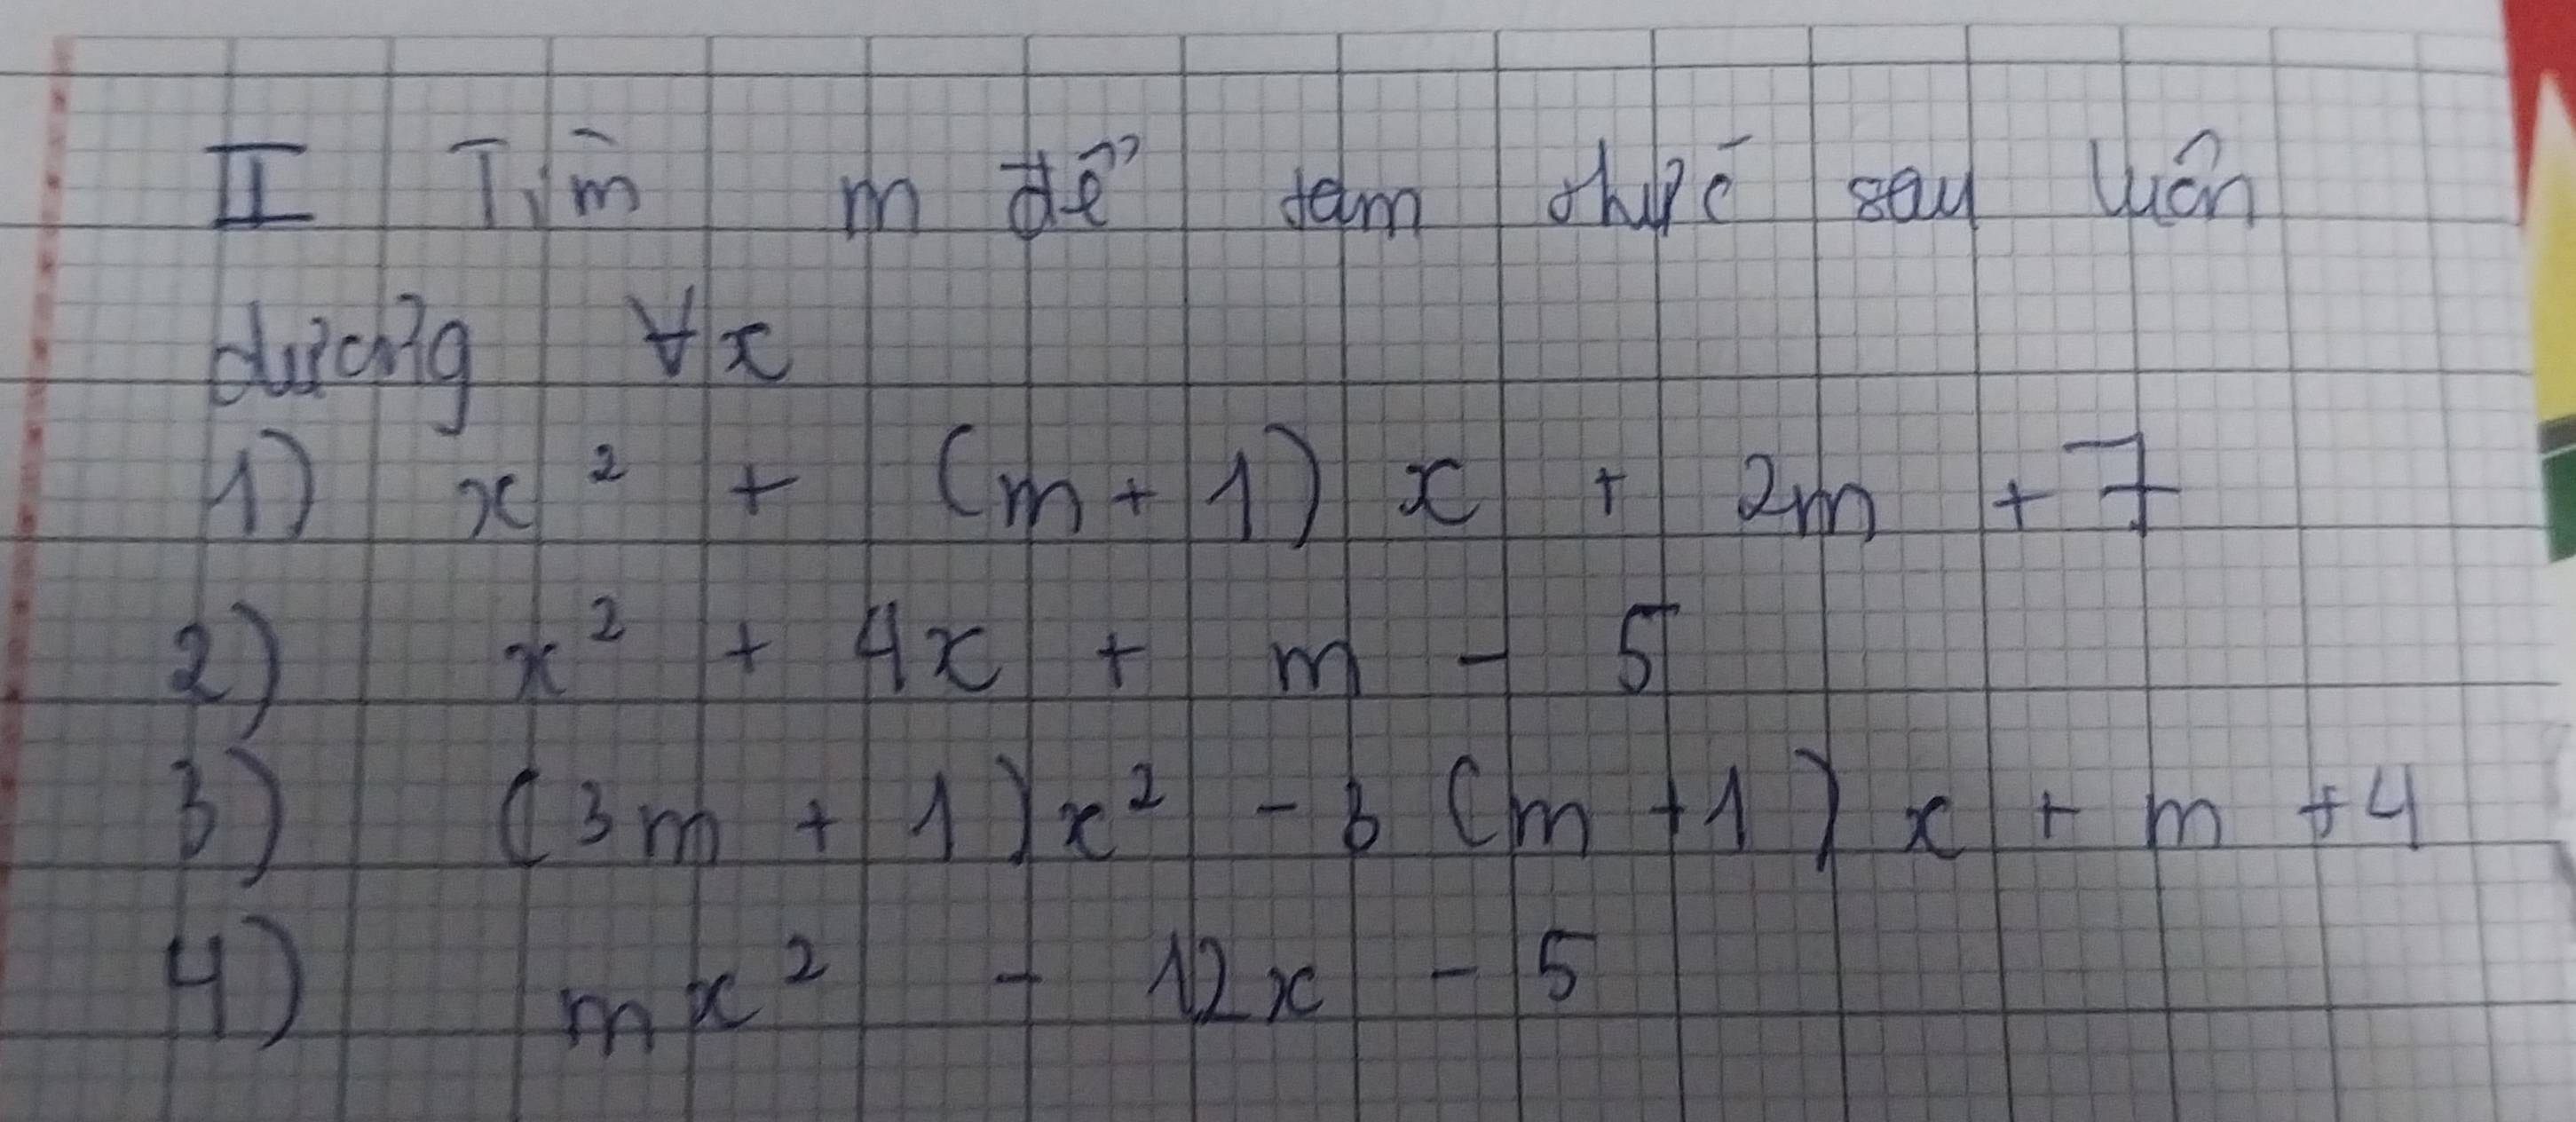 II Tìm m để tam thức sau luôn
dương ∀x
1) x² + (m+1)x + 2m + 7
2) x² + 4x + m - 5
3) (3m + 1)x² - 3(m+1)x + m + 4
4) mx² - 12x - 5